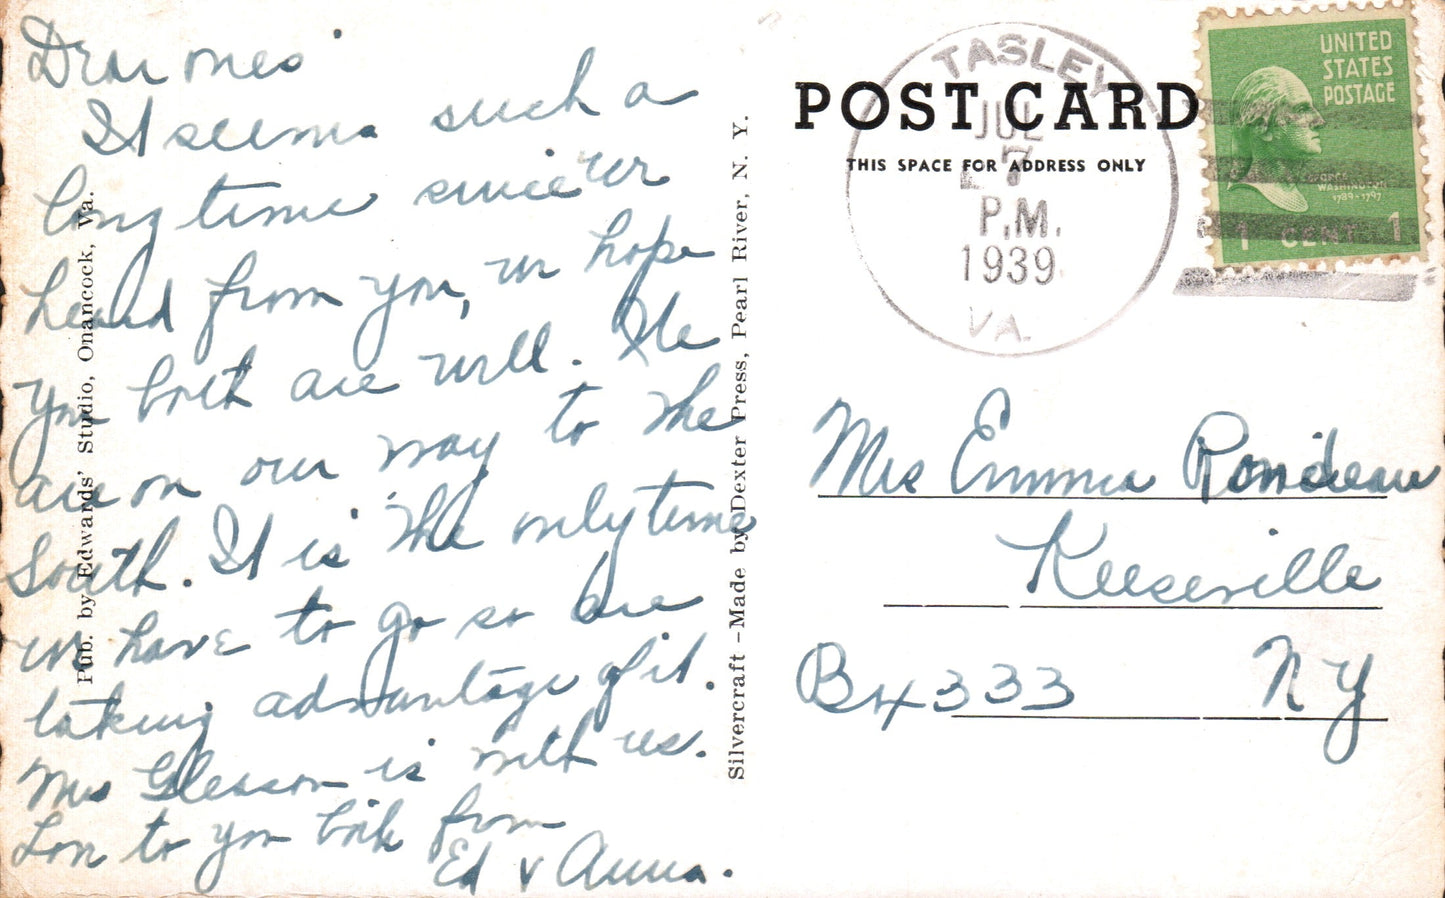 Dear ones
It seems such a
long time since we
heard from you, we hope
you both are well. We
are on our way to the
South. It is the only time
we have to go so are
taking advantage of it.
Mrs Gleason is with us.
Lon to you both from
Ed & Anna.
Pub. by Edwards' Studio, Onancock, Va.
Silvercraft – Made by Dexter Press, Pearl River, N. Y.
POST CARD
THIS SPACE FOR ADDRESS ONLY
TASLEY
JUL
7
P.M.
1939
VA.
UNITED
STATES
POSTAGE
GEORGE
WASHINGTON
1789-1797
1 CENT 1
Mrs Emma Rondeau
Keeseville
Bx 333 NY